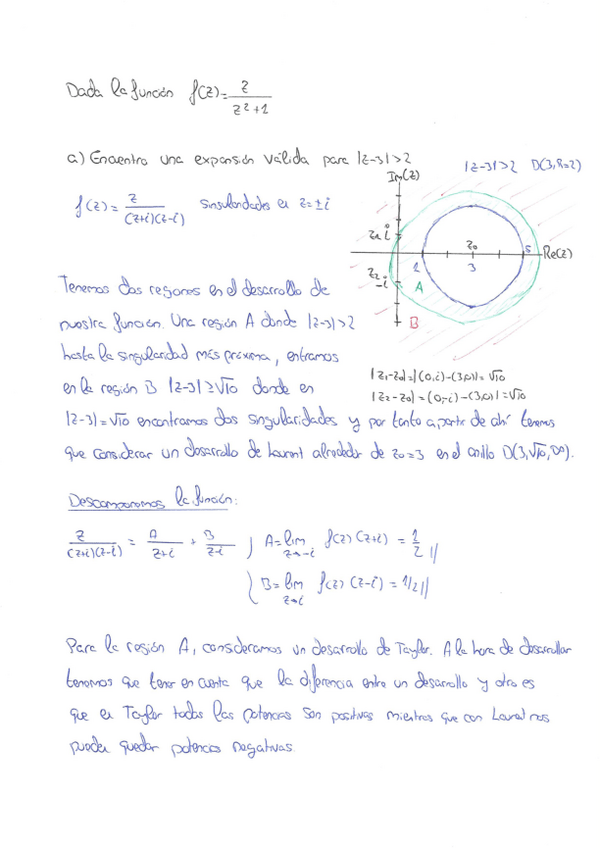 Dada la función f(z) = z / z²+1
a) Encuentra una expansión válida para |z-3|>2
|z-3|>2 D(3,R=2)
Im(z)
f(z) = z / (z+i)(z-i) singularidades en z=±i
z₁ i
z₀
5
Re(z)
1
3
z₂ -i
A
B
Tenemos dos regiones en el desarrollo de
nuestra función. Una región A donde |z-3|>2
hasta la singularidad más próxima, entramos
en la región B |z-3|≥√10 donde en
|z₁-z₀|=|(0,i)-(3,0)|=√10
|z₂-z₀|=(0,-i)-(3,0)|=√10
|z-3|=√10 encontramos dos singularidades y por tanto a partir de ahí tenemos
que considerar un desarrollo de Laurent alrededor de z₀=3 en el anillo D(3,√10,∞).
Descomponemos la función:
z / (z+i)(z-i) = A / z+i + B / z-i ; A=lim z→-i f(z)(z+i) = 1/2 //
B=lim z→i f(z)(z-i) = 1/2 //
Para la región A, consideramos un desarrollo de Taylor. A la hora de desarrollar
tenemos que tener en cuenta que la diferencia entre un desarrollo y otro es
que en Taylor todas las potencias son positivas mientras que con Laurent nos
pueden quedar potencias negativas.